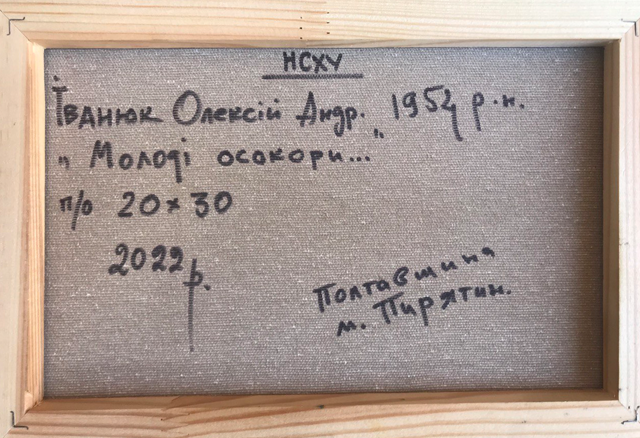 НСХУ
Іванюк Олексій Андр. 1954 р.н.
„ Молоді осокори... "
п/о 20×30
2022 р.
Полтавщина
м. Пирятин.